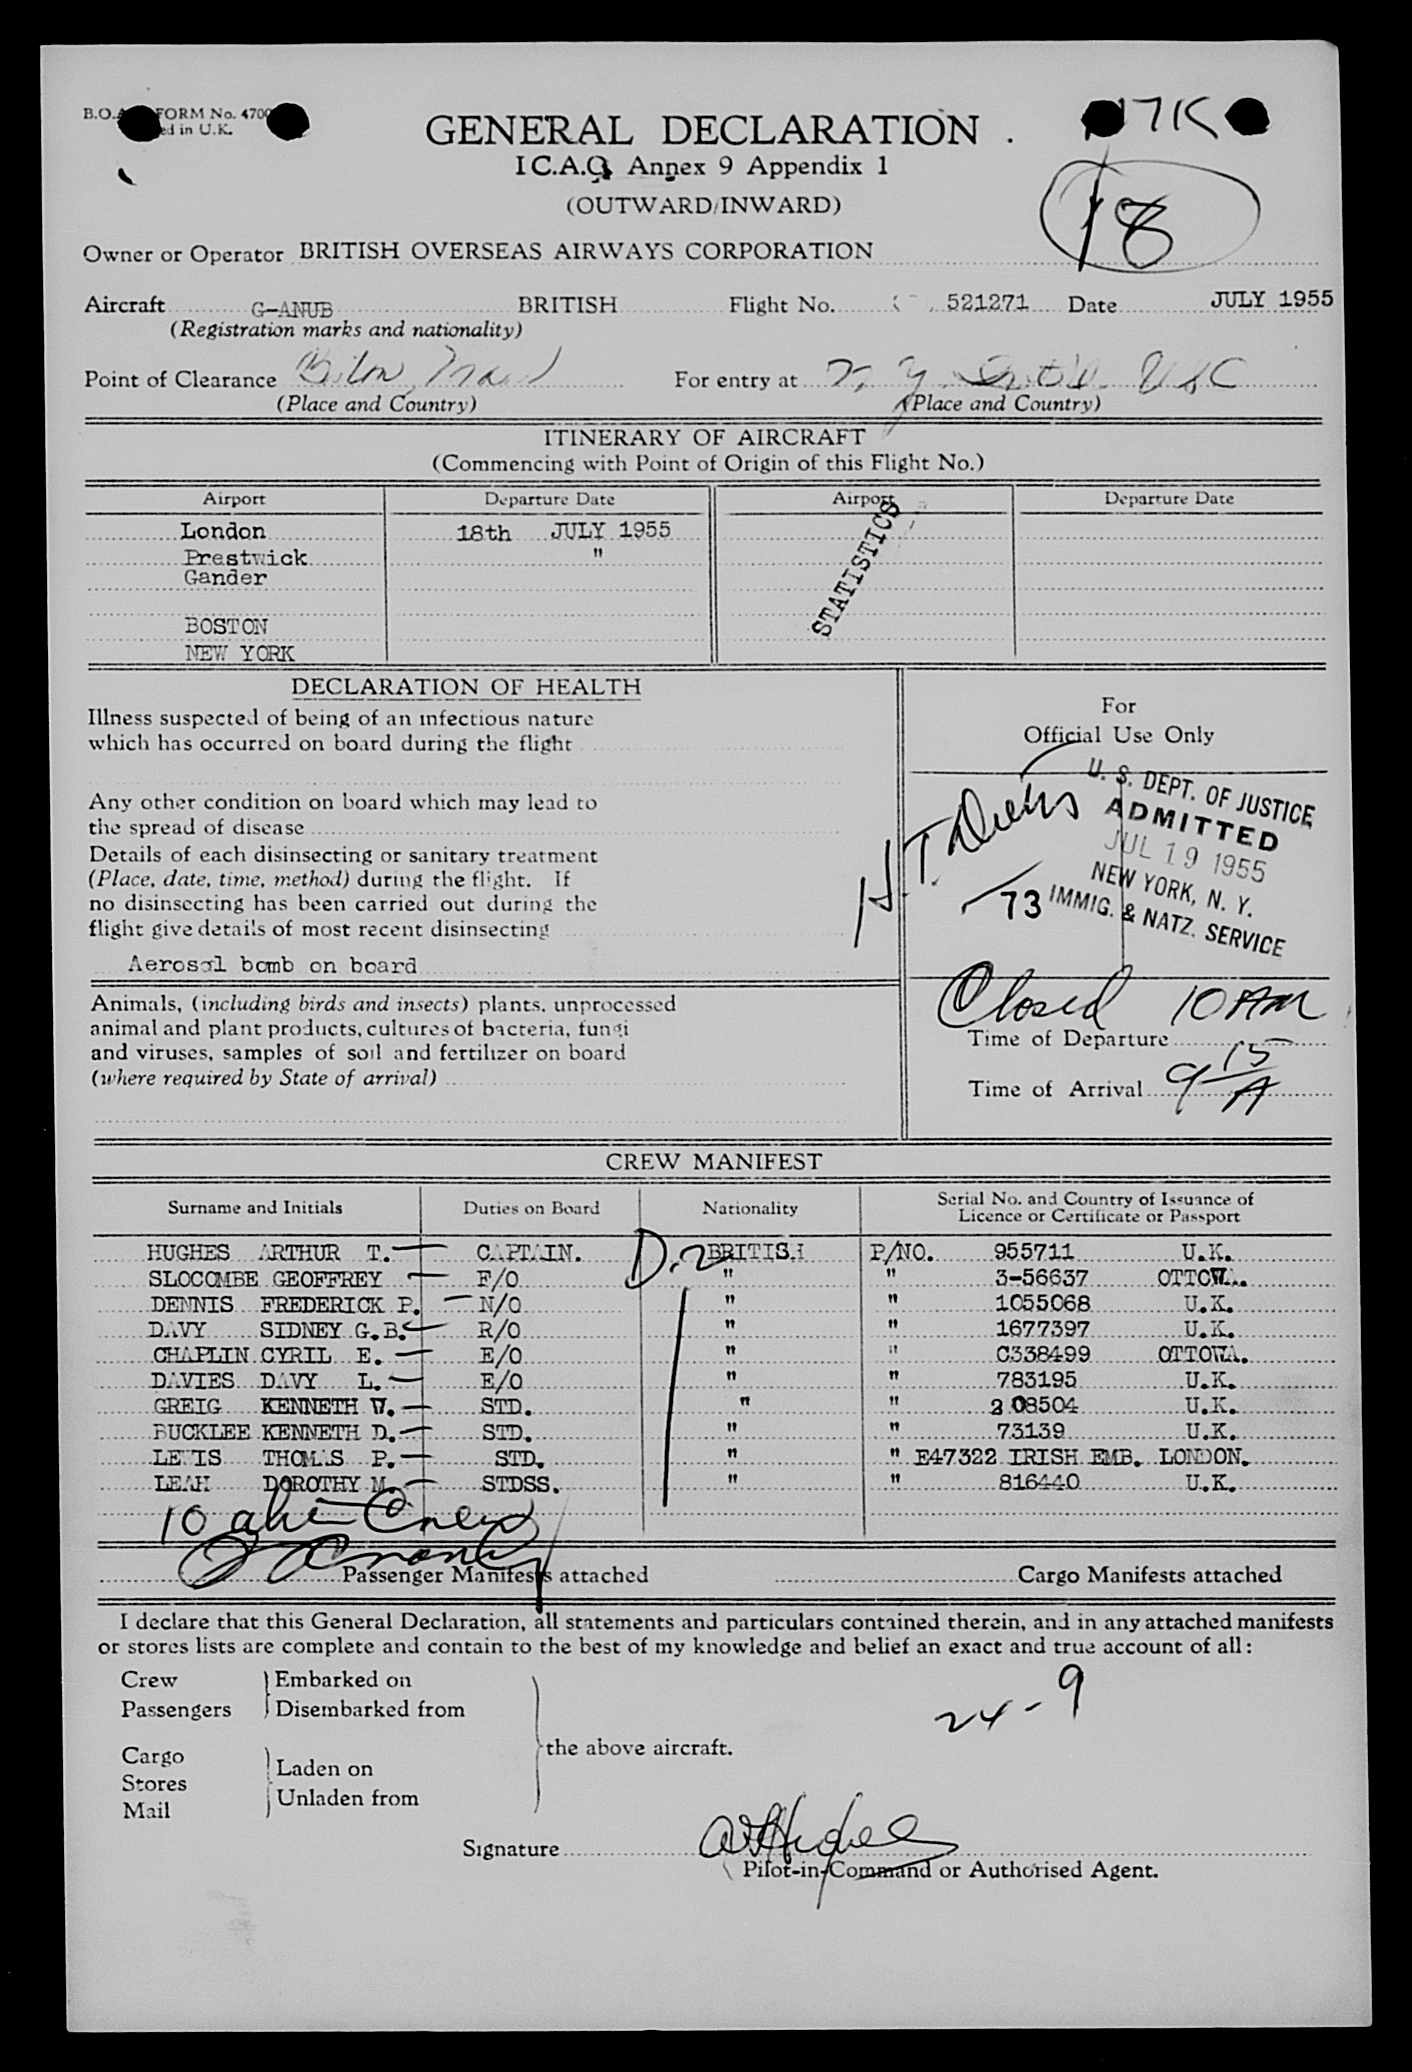 FORM No. 4700
ed in U.K.
17K
GENERAL DECLARATION .
I C.A.O. Annex 9 Appendix 1
(OUTWARD/INWARD)
18
Owner or Operator BRITISH OVERSEAS AIRWAYS CORPORATION
Aircraft G-ANUB BRITISH Flight No. 521271 Date JULY 1955
(Registration marks and nationality)
Point of Clearance For entry at N. Y.
(Place and Country) (Place and Country)
ITINERARY OF AIRCRAFT
(Commencing with Point of Origin of this Flight No.)
Airport Departure Date Airport Departure Date
London 18th JULY 1955
Prestwick "
Gander
BOSTON
NEW YORK
STATISTICS
DECLARATION OF HEALTH
Illness suspected of being of an infectious nature
which has occurred on board during the flight
Any other condition on board which may lead to
the spread of disease
Details of each disinsecting or sanitary treatment
(Place, date, time, method) during the flight. If
no disinsecting has been carried out during the
flight give details of most recent disinsecting
Aerosol bomb on board
Animals, (including birds and insects) plants, unprocessed
animal and plant products, cultures of bacteria, fungi
and viruses, samples of soil and fertilizer on board
(where required by State of arrival)
For
Official Use Only
U. S. DEPT. OF JUSTICE
ADMITTED
JUL 19 1955
NEW YORK, N. Y.
73 IMMIG. & NATZ. SERVICE
Closed 10 AM
Time of Departure
Time of Arrival 9 15 A
CREW MANIFEST
Surname and Initials Duties on Board Nationality Serial No. and Country of Issuance of
Licence or Certificate or Passport
HUGHES ARTHUR T. CAPTAIN. D.2 BRITISH P/NO. 955711 U.K.
SLOCOMBE GEOFFREY F/O " " 3-56637 OTTOWA.
DENNIS FREDERICK P. N/O " " 1055068 U.K.
DAVY SIDNEY G.B. R/O " " 1677397 U.K.
CHAPLIN CYRIL E. E/O " " C338499 OTTOWA.
DAVIES DAVY L. E/O " " 783195 U.K.
GREIG KENNETH W. STD. " " 208504 U.K.
BUCKLEE KENNETH D. STD. " " 73139 U.K.
LEWIS THOMAS P. STD. " " E47322 IRISH EMB. LONDON.
LEAH DOROTHY M. STDSS. " " 816440 U.K.
10 alien Crew
Passenger Manifests attached Cargo Manifests attached
I declare that this General Declaration, all statements and particulars contained therein, and in any attached manifests
or stores lists are complete and contain to the best of my knowledge and belief an exact and true account of all:
Crew Embarked on
Passengers Disembarked from
24-9
the above aircraft.
Cargo
Stores Laden on
Mail Unladen from
Signature A T Hughes
Pilot-in-Command or Authorised Agent.